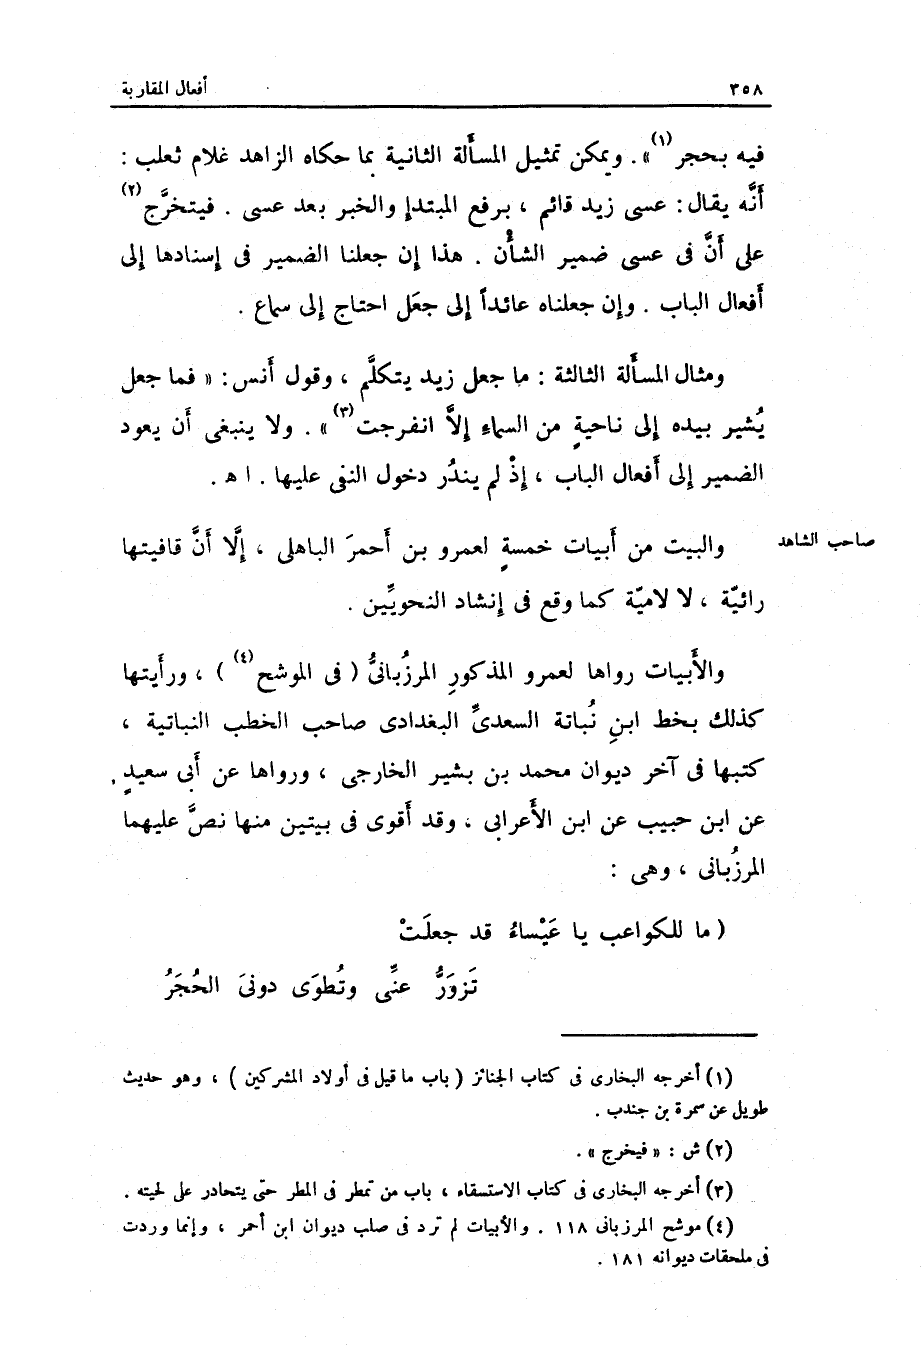 ٣٥٨ أفعال المقاربة
فيه بحجر(١)» . ويمكن تمثيل المسألة الثانية بما حكاه الزاهد غلام ثعلب :
أنَّه يقال : عسى زيد قائم ، برفع المبتدإ والخبر بعد عسى . فيتخرَّج(٢)
على أنَّ فى عسى ضمير الشأن . هذا إن جعلنا الضمير فى إسنادها إلى
أفعال الباب . وإن جعلناه عائداً إلى جعَل احتاج إلى سماع .
ومثال المسألة الثالثة : ما جعل زيد يتكلَّم ، وقول أنس : « فما جعل
يُشير بيده إلى ناحيةٍ من السماء إلاَّ انفرجت(٣)» . ولا ينبغى أن يعود
الضمير إلى أفعال الباب ، إذْ لم يندُر دخول النفى عليها . ا هـ .
صاحب الشاهد
والبيت من أبيات خمسةٍ لعمرو بن أحمرَ الباهلى ، إلَّا أنَّ قافيتها
رائيّة ، لا لاميّة كما وقع فى إنشاد النحويِّين .
والأبيات رواها لعمرو المذكورِ المرزُبانىُّ ( فى الموشح(٤) ) ، ورأيتها
كذلك بخط ابنِ نُباتة السعدىِّ البغدادى صاحب الخطب النباتية ،
كتبها فى آخر ديوان محمد بن بشير الخارجى ، ورواها عن أبى سعيدٍ
عن ابن حبيب عن ابن الأعرابى ، وقد أقوى فى بيتين منها نصَّ عليهما
المرزُبانى ، وهى :
( ما للكواعب يا عَيْساءُ قد جعلَتْ
تَزورُّ عنِّى وتُطوَى دونىَ الحُجَرُ
(١) أخرجه البخارى فى كتاب الجنائز ( باب ما قيل فى أولاد المشركين ) ، وهو حديث
طويل عن سمرة بن جندب .
(٢) ش : « فيخرج » .
(٣) أخرجه البخارى فى كتاب الاستسقاء ، باب من تمطر فى المطر حتى يتحادر على لحيته .
(٤) موشح المرزبانى ١١٨ . والأبيات لم ترد فى صلب ديوان ابن أحمر ، وإنما وردت
فى ملحقات ديوانه ١٨١ .